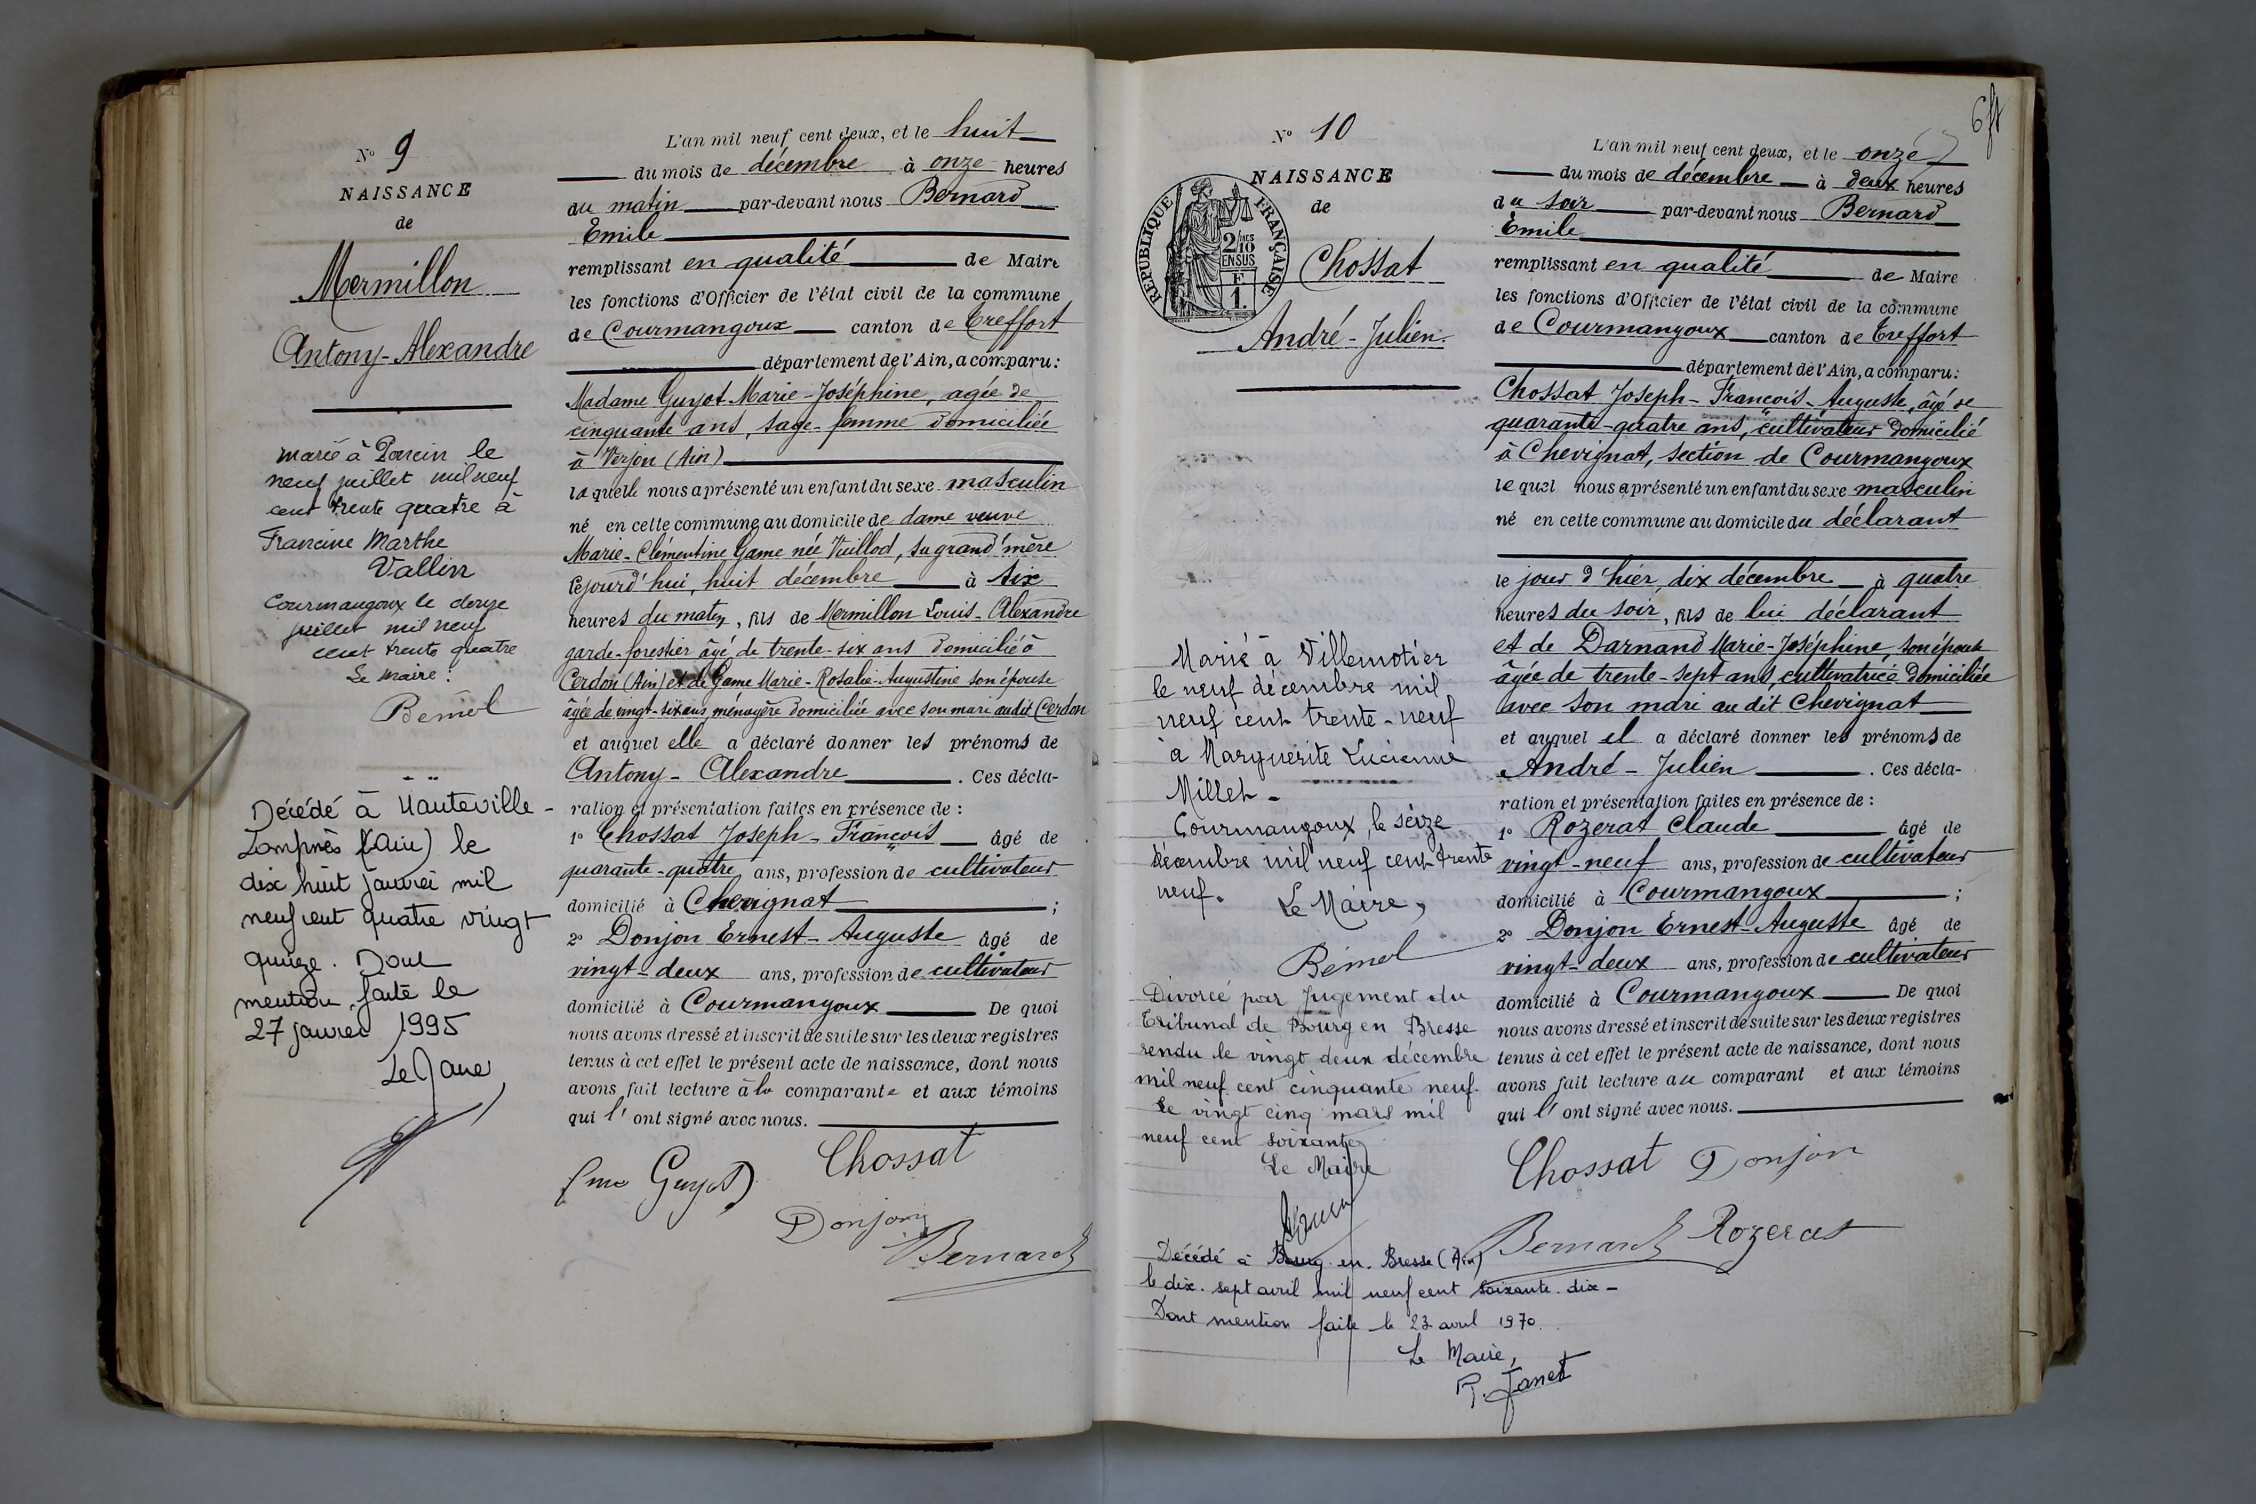 N° 9
NAISSANCE
de
Mermillon
Antony-Alexandre
marié à Poncin le
neuf juillet mil neuf
cent trente quatre à
Francine Marthe
Vallin
Courmangoux le douze
juillet mil neuf
cent trente quatre
Le maire :
Bémol
Décédé à Hauteville-
Lompnès (Ain) le
dix huit janvier mil
neuf cent quatre vingt
quinze. Dont
mention faite le
27 janvier 1995
Le Maire,
L'an mil neuf cent deux, et le huit
du mois de décembre à onze heures
du matin par-devant nous Bernard
Emile
remplissant en qualité de Maire
les fonctions d'Officier de l'état civil de la commune
de Courmangoux canton de Treffort
département de l'Ain, a comparu:
Madame Guyot Marie-Joséphine, agée de
cinquante ans, sage-femme domiciliée
à Verjon (Ain)
laquelle nous a présenté un enfant du sexe masculin
né en cette commune au domicile de dame veuve
Marie-Clémentine Game née Vuillod, sa grand'mère
cejourd'hui, huit décembre à six
heures du matin, fils de Mermillon Louis-Alexandre
garde-forestier âgé de trente-six ans domicilié à
Cerdon (Ain) et de Game Marie-Rosalie-Augustine son épouse
âgée de vingt-six ans, ménagère domiciliée avec son mari audit Cerdon
et auquel elle a déclaré donner les prénoms de
Antony-Alexandre . Ces décla-
ration et présentation faites en présence de :
1° Chossat Joseph-François âgé de
quarante-quatre ans, profession de cultivateur
domicilié à Chevignat ;
2° Donjon Ernest-Auguste âgé de
vingt-deux ans, profession de cultivateur
domicilié à Courmangoux De quoi
nous avons dressé et inscrit de suite sur les deux registres
tenus à cet effet le présent acte de naissance, dont nous
avons fait lecture à la comparante et aux témoins
qui l'ont signé avec nous.
Chossat
fme Guyot
Donjon
Bernard
6
N° 10
NAISSANCE
de
RÉPUBLIQUE FRANÇAISE
2/10
EN SUS
F
1.
Chossat
André-Julien
Marié à Villemotier
le neuf décembre mil
neuf cent trente-neuf
à Marguerite Lucienne
Millet-
Courmangoux, le seize
décembre mil neuf cent trente
neuf.
Le Maire,
Bémol
Divorcé par Jugement du
Tribunal de Bourg en Bresse
rendu le vingt deux décembre
mil neuf cent cinquante neuf.
Le vingt cinq mars mil
neuf cent soixante
Le Maire
Décédé à Bourg-en-Bresse (Ain)
le dix-sept avril mil neuf cent soixante-dix-
Dont mention faite le 23 avril 1970.
Le Maire,
P. Janet
L'an mil neuf cent deux, et le onze
du mois de décembre à deux heures
du soir par-devant nous Bernard
Emile
remplissant en qualité de Maire
les fonctions d'Officier de l'état civil de la commune
de Courmangoux canton de Treffort
département de l'Ain, a comparu:
Chossat Joseph-François-Auguste, âgé de
quarante-quatre ans, cultivateur domicilié
à Chevignat, section de Courmangoux
lequel nous a présenté un enfant du sexe masculin
né en cette commune au domicile du déclarant
le jour d'hier, dix décembre à quatre
heures du soir, fils de lui déclarant
et de Darnand Marie-Joséphine, son épouse
âgée de trente-sept ans, cultivatrice domiciliée
avec son mari au dit Chevignat
et auquel il a déclaré donner les prénoms de
André-Julien . Ces décla-
ration et présentation faites en présence de :
1° Rozerat Claude âgé de
vingt-neuf ans, profession de cultivateur
domicilié à Courmangoux ;
2° Donjon Ernest-Auguste âgé de
vingt-deux ans, profession de cultivateur
domicilié à Courmangoux De quoi
nous avons dressé et inscrit de suite sur les deux registres
tenus à cet effet le présent acte de naissance, dont nous
avons fait lecture au comparant et aux témoins
qui l'ont signé avec nous.
Chossat Donjon
Bernard Rozerat